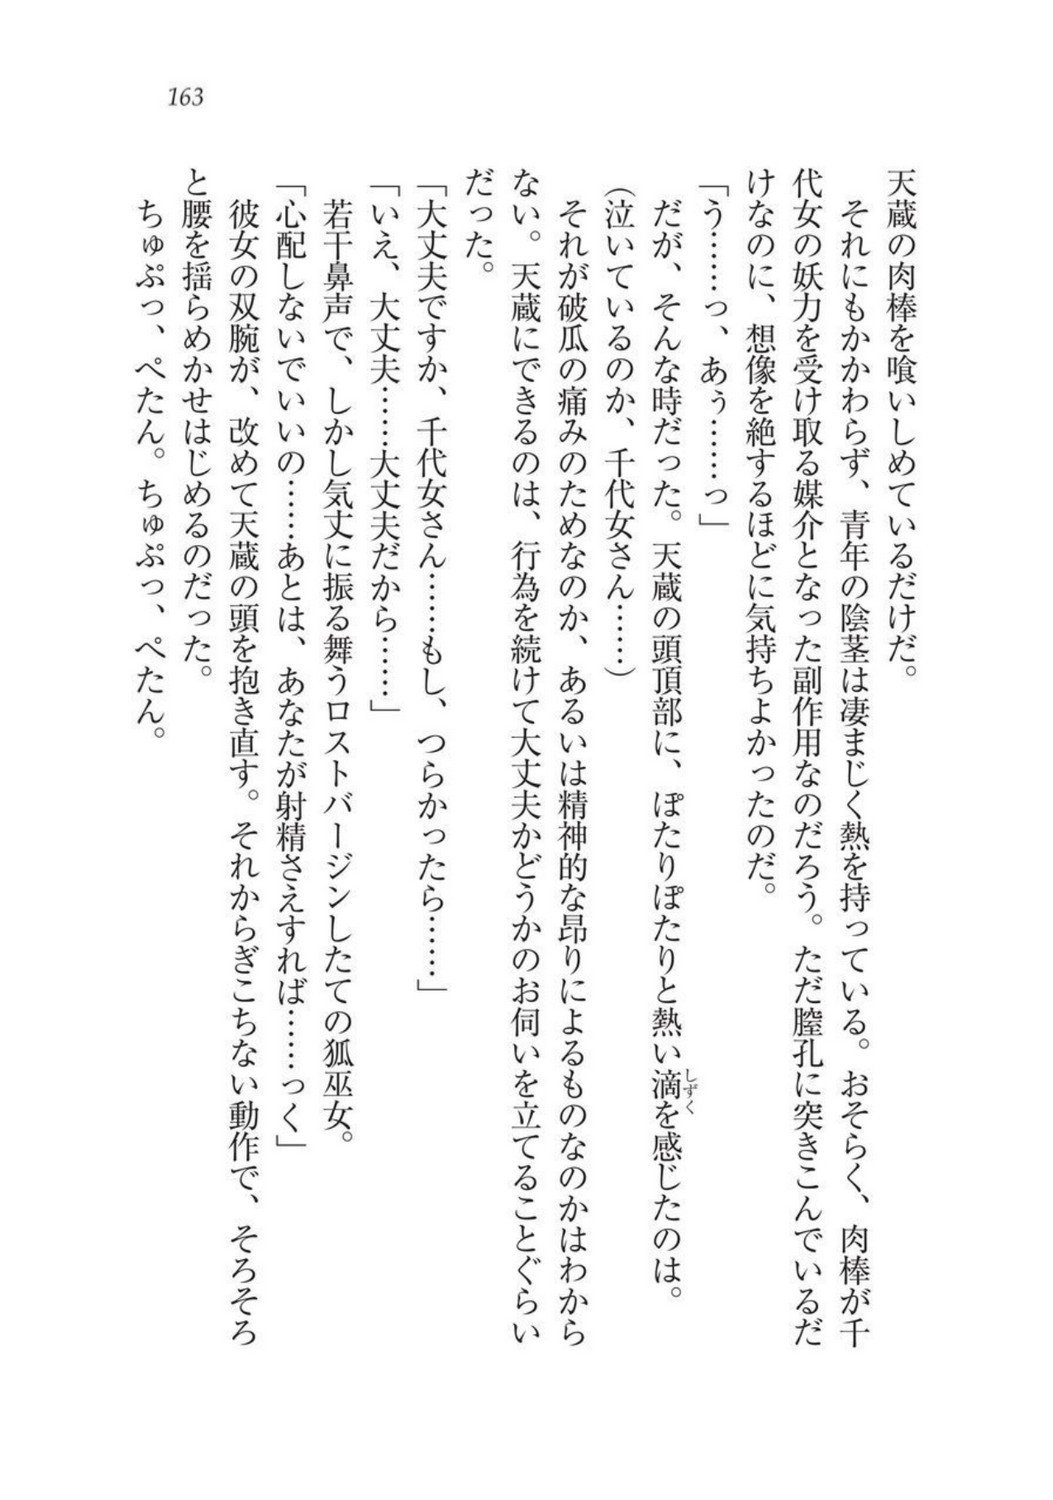 163
天蔵の肉棒を喰いしめているだけだ。
それにもかかわらず、青年の陰茎は凄まじく熱を持っている。おそらく、肉棒が千
代女の妖力を受け取る媒介となった副作用なのだろう。ただ膣孔に突きこんでいるだ
けなのに、想像を絶するほどに気持ちよかったのだ。
「う……っ、あぅ……っ」
だが、そんな時だった。天蔵の頭頂部に、ぽたりぽたりと熱い滴しずくを感じたのは。
(泣いているのか、千代女さん……)
それが破瓜の痛みのためなのか、あるいは精神的な昂りによるものなのかはわから
ない。天蔵にできるのは、行為を続けて大丈夫かどうかのお伺いを立てることぐらい
だった。
「大丈夫ですか、千代女さん……もし、つらかったら……」
「いえ、大丈夫……大丈夫だから……」
若干鼻声で、しかし気丈に振る舞うロストバージンしたての狐巫女。
「心配しないでいいの……あとは、あなたが射精さえすれば……っく」
彼女の双腕が、改めて天蔵の頭を抱き直す。それからぎこちない動作で、そろそろ
と腰を揺らめかせはじめるのだった。
ちゅぷっ、ぺたん。ちゅぷっ、ぺたん。